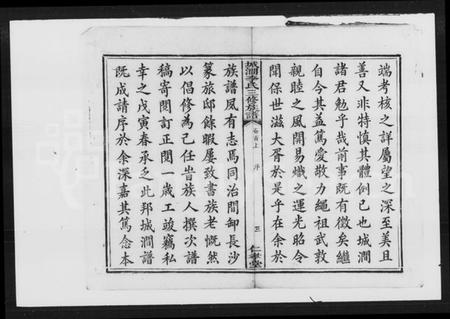 端考核之詳屬望之深至美且
善又非特慎其體例已也城澗
諸君勉乎哉前事既有微矣繼
自今其益篤愛敬力繩祖武敦
親睦之風開易熾之運光昭令
聞保世滋大胥於是乎在余於
城澗李氏三修族譜
卷首上 序
三
仁孝堂
族譜夙有志焉同治間卸長沙
篆旅邸餘暇屢致書族老慨然
以倡修為己任旹族人撰次譜
稿寄閱訂正閱一歲工竣竊私
幸之戊寅春承乏此邦城澗譜
既成請序於余深嘉其篤念本